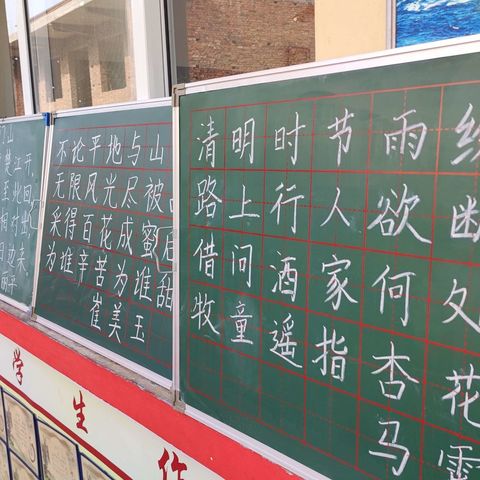 山
楚江开,
至此回
相对出
日边来
不论平地与山
无限风光尽被
采得百花成蜜后
为谁辛苦为谁甜
崔美玉
清明时节雨
路上行人欲断
借问酒家何处
牧童遥指杏花
马
学生作